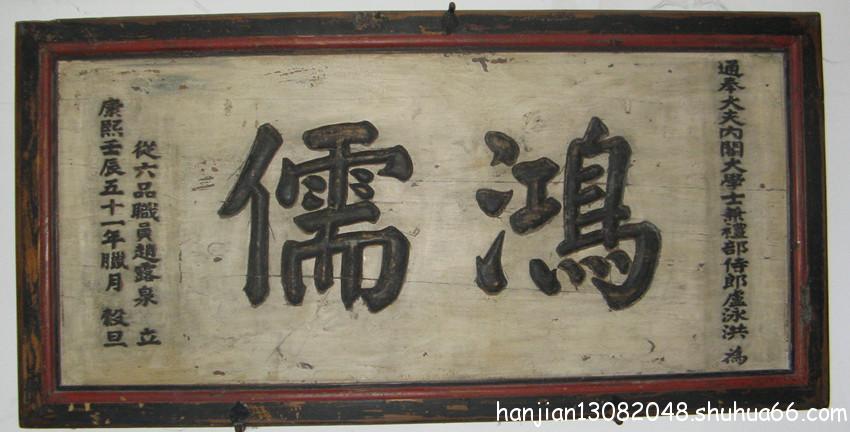 通奉大夫内閣大學士兼禮部侍郎盧泳洪 為
鴻儒
從六品職員趙露泉 立
康熙壬辰五十一年臘月 穀旦
hanjian13082048.shuhua66.com